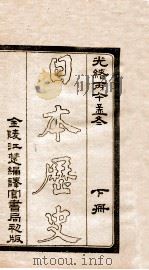 光緒丙午孟冬 下冊
日本歷史
金陵江楚編譯官書局初版
mtoou.info